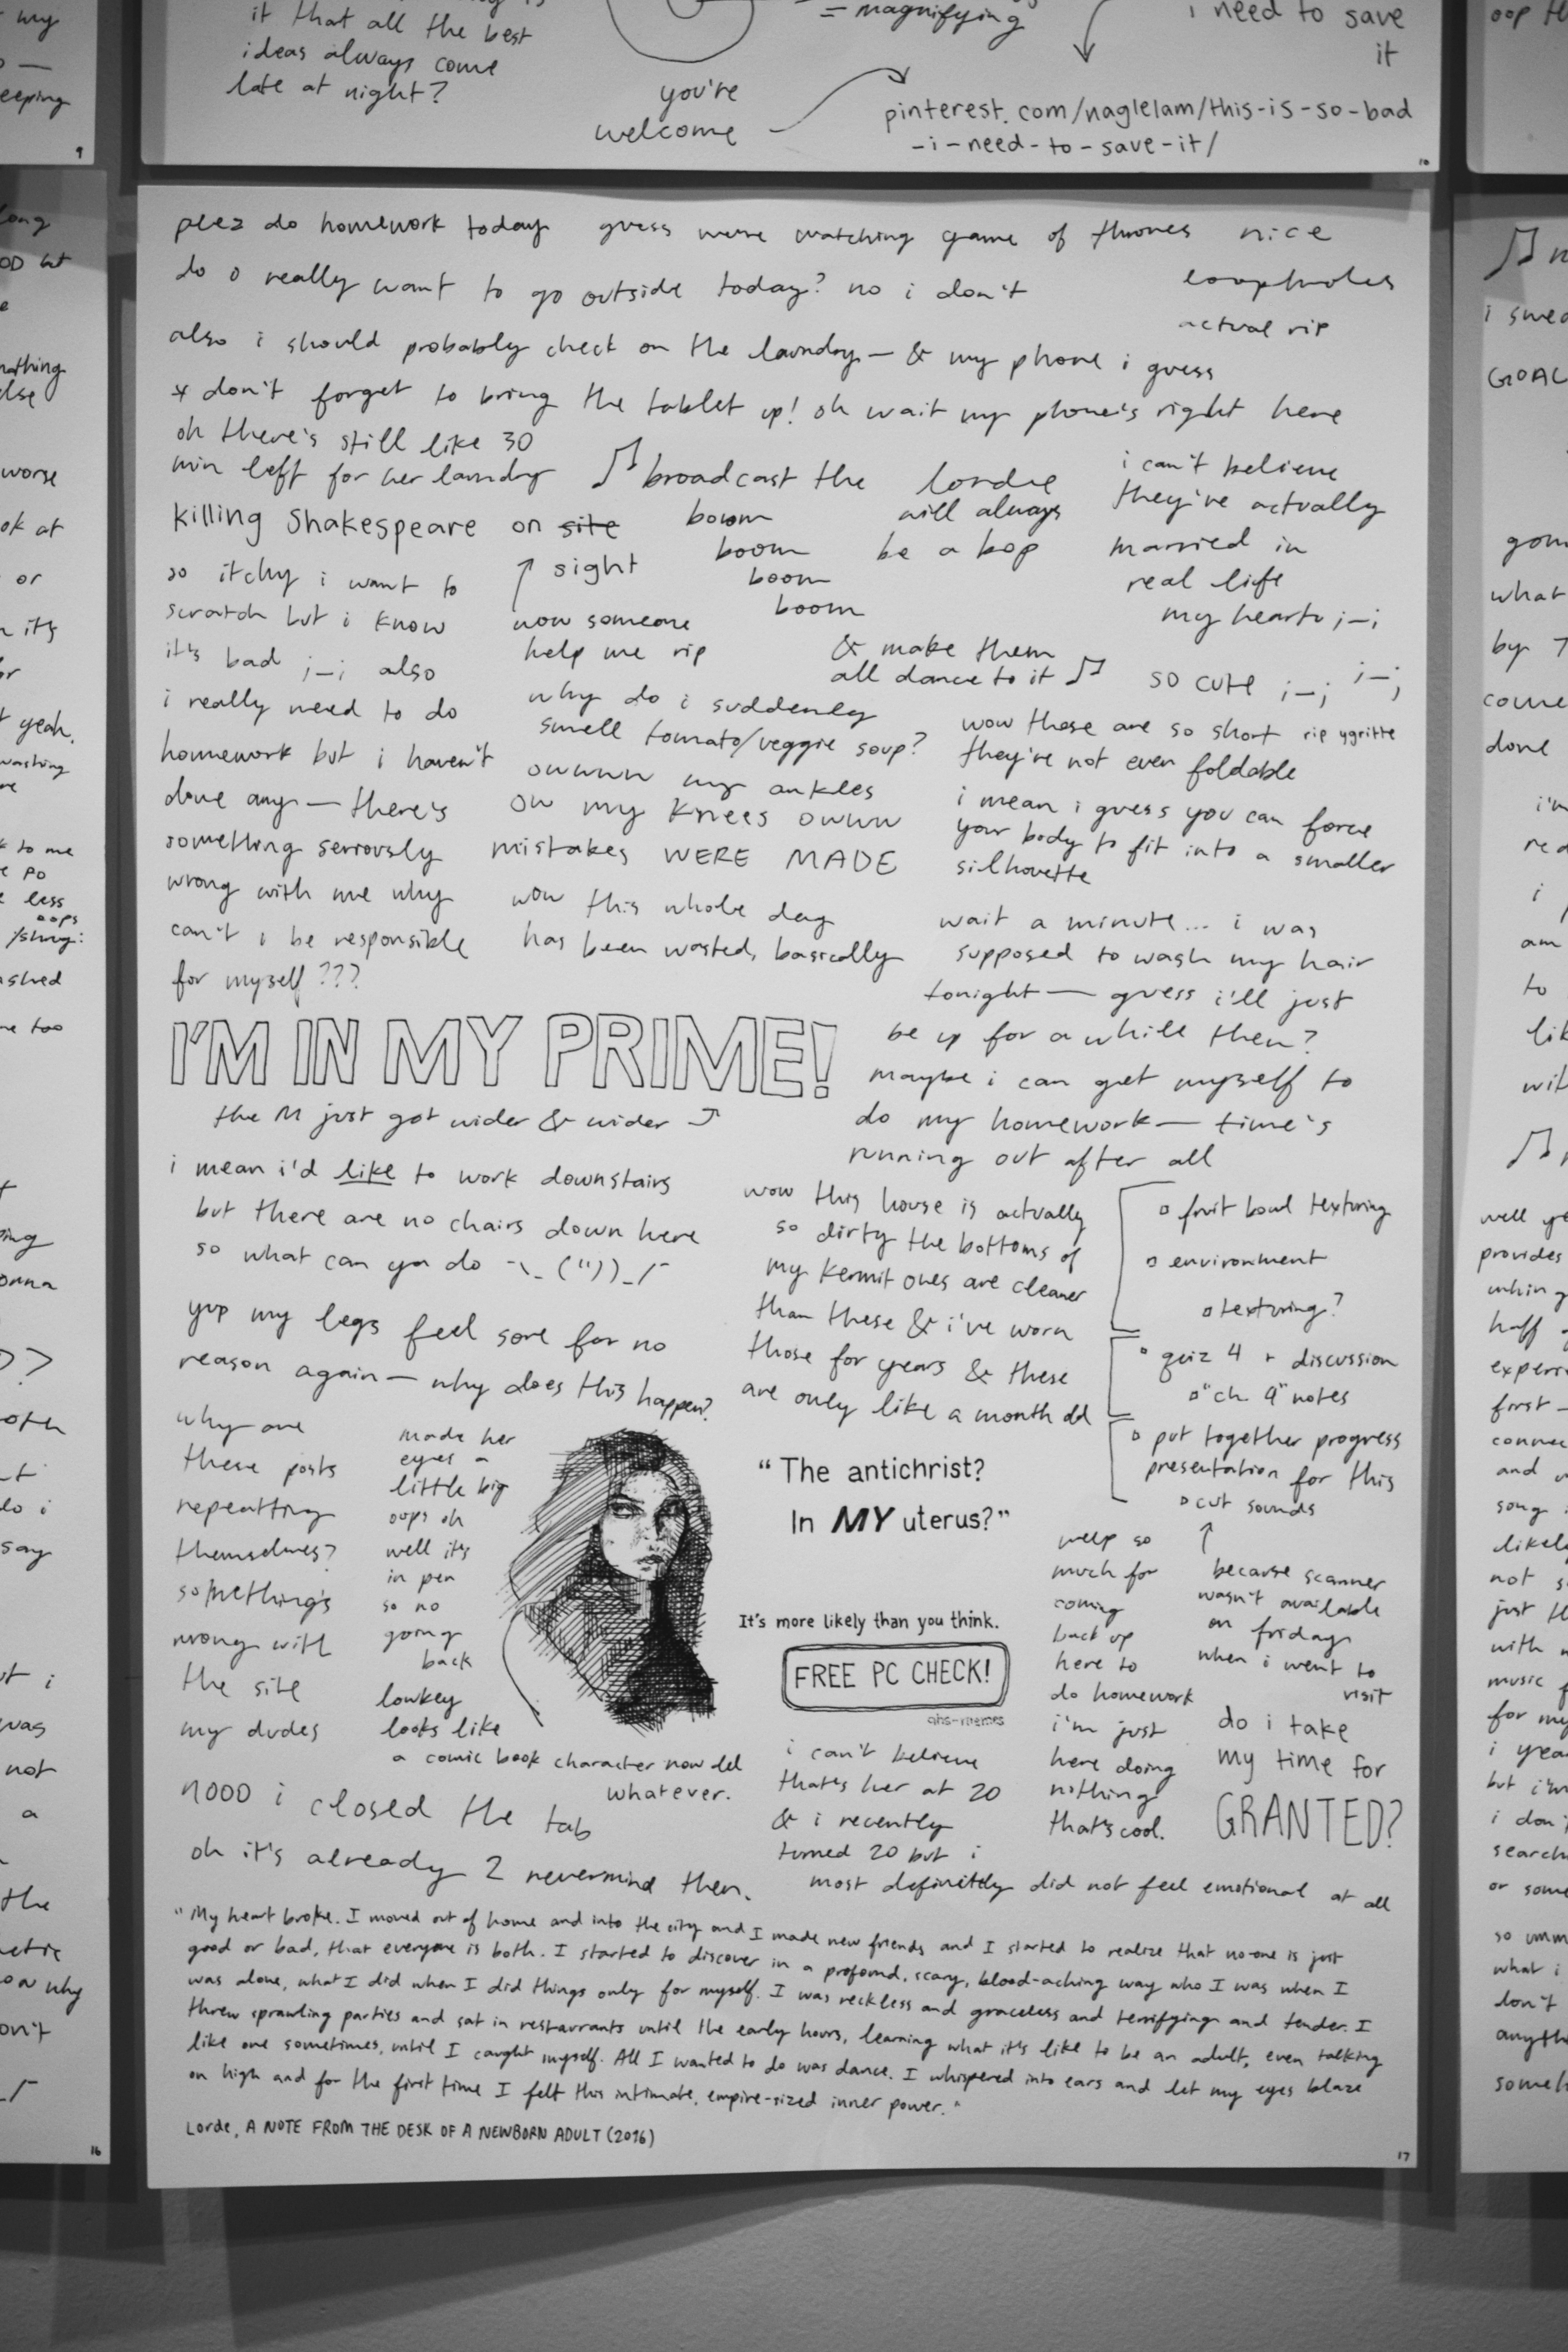 it that all the best
ideas always come
late at night?
you're
welcome
= magnifying
i need to save
it
pinterest.com/naglelam/this-is-so-bad
-i-need-to-save-it/
10
my
eeping
9
plez do homework today guess we're watching game of thrones nice
loopholes
actual rip
do o really want to go outside today? no i don't
also i should probably check on the laundry — & my phone i guess
* don't forget to bring the tablet up! oh wait my phone's right here
oh there's still like 30
min left for her laundry
♫ broadcast the
boom
boom
boom
boom
& make them
all dance to it ♫
lorde
will always
be a bop
i can't believe
they've actually
married in
real life
my hearto ;—;
so cute ;—; ;—;
rip ygritte
killing Shakespeare on site
↑ sight
so itchy i want to
scratch but i know
it's bad ;—; also
i really need to do
homework but i haven't
done any — there's
something seriously
wrong with me why
can't i be responsible
for myself???
wow someone
help me rip
why do i suddenly
smell tomato/veggie soup?
owwww my ankles
ow my knees owww
mistakes WERE MADE
wow this whole day
has been wasted, basically
wow these are so short
they're not even foldable
i mean i guess you can force
your body to fit into a smaller
silhouette
wait a minute... i was
supposed to wash my hair
tonight — guess i'll just
be up for a while then?
maybe i can get myself to
do my homework — time's
running out after all
I'M IN MY PRIME!
the M just got wider & wider
i mean i'd like to work downstairs
but there are no chairs down here
so what can ya do ¯\_(")_/¯
yup my legs feel sore for no
reason again — why does this happen?
wow this house is actually
so dirty the bottoms of
my kermit ones are cleaner
than these & i've worn
those for years & these
are only like a month old
fruit bowl texturing
environment
texturing?
quiz 4 + discussion
"ch 9" notes
put together progress
presentation for this
cut sounds
↑
because scanner
wasn't available
on friday
when i went to
visit
why are
these posts
repeating
themselves?
something's
wrong with
the site
my dudes
made her
eyes a
little big
oops oh
well it's
in pen
so no
going
back
lowkey
looks like
a comic book character now lol
whatever.
"The antichrist?
In MY uterus?"
It's more likely than you think.
FREE PC CHECK!
ahs-memes
welp so
much for
coming
back up
here to
do homework
i'm just
here doing
nothing
that's cool.
do i take
my time for
GRANTED?
nooo i closed the tab
oh it's already 2 nevermind then.
i can't believe
that's her at 20
& i recently
turned 20 but i
most definitely did not feel emotional at all
"My heart broke. I moved out of home and into the city and I made new friends and I started to realize that no-one is just
good or bad, that everyone is both. I started to discover in a profound, scary, blood-aching way who I was when I
was alone, what I did when I did things only for myself. I was reckless and graceless and terrifying and tender. I
threw sprawling parties and sat in restaurants until the early hours, learning what it's like to be an adult, even talking
like one sometimes, until I caught myself. All I wanted to do was dance. I whispered into ears and let my eyes blaze
on high and for the first time I felt this intimate, empire-sized inner power."
Lorde, A NOTE FROM THE DESK OF A NEWBORN ADULT (2016)
17
16